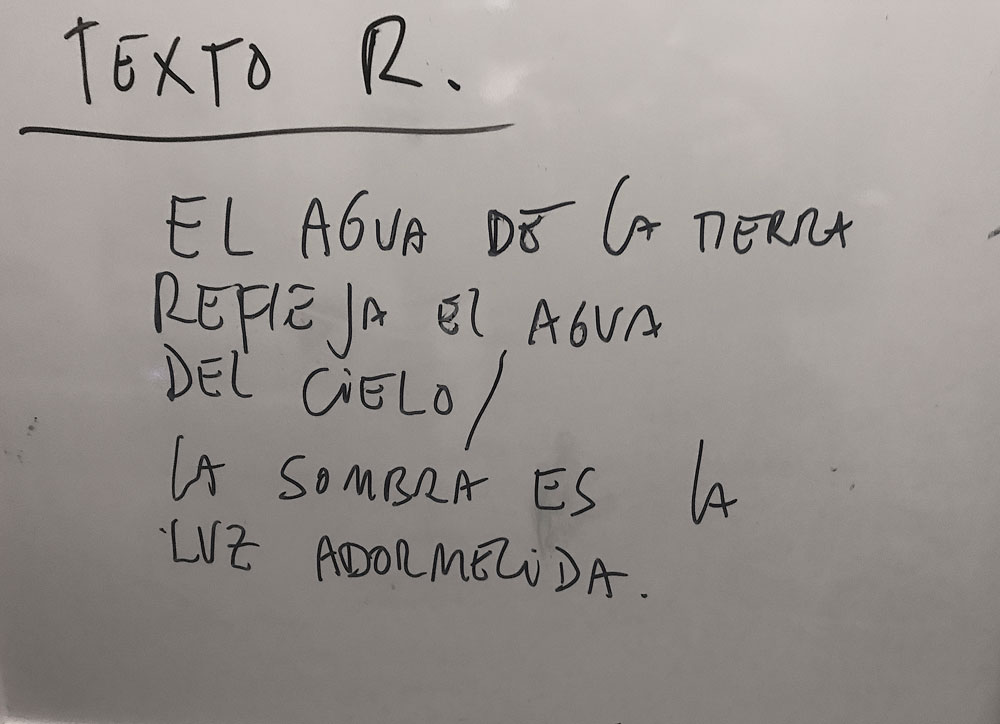 TEXTO R.
EL AGUA DE LA TIERRA
REFLEJA EL AGUA
DEL CIELO/
LA SOMBRA ES LA
LUZ ADORMECIDA.